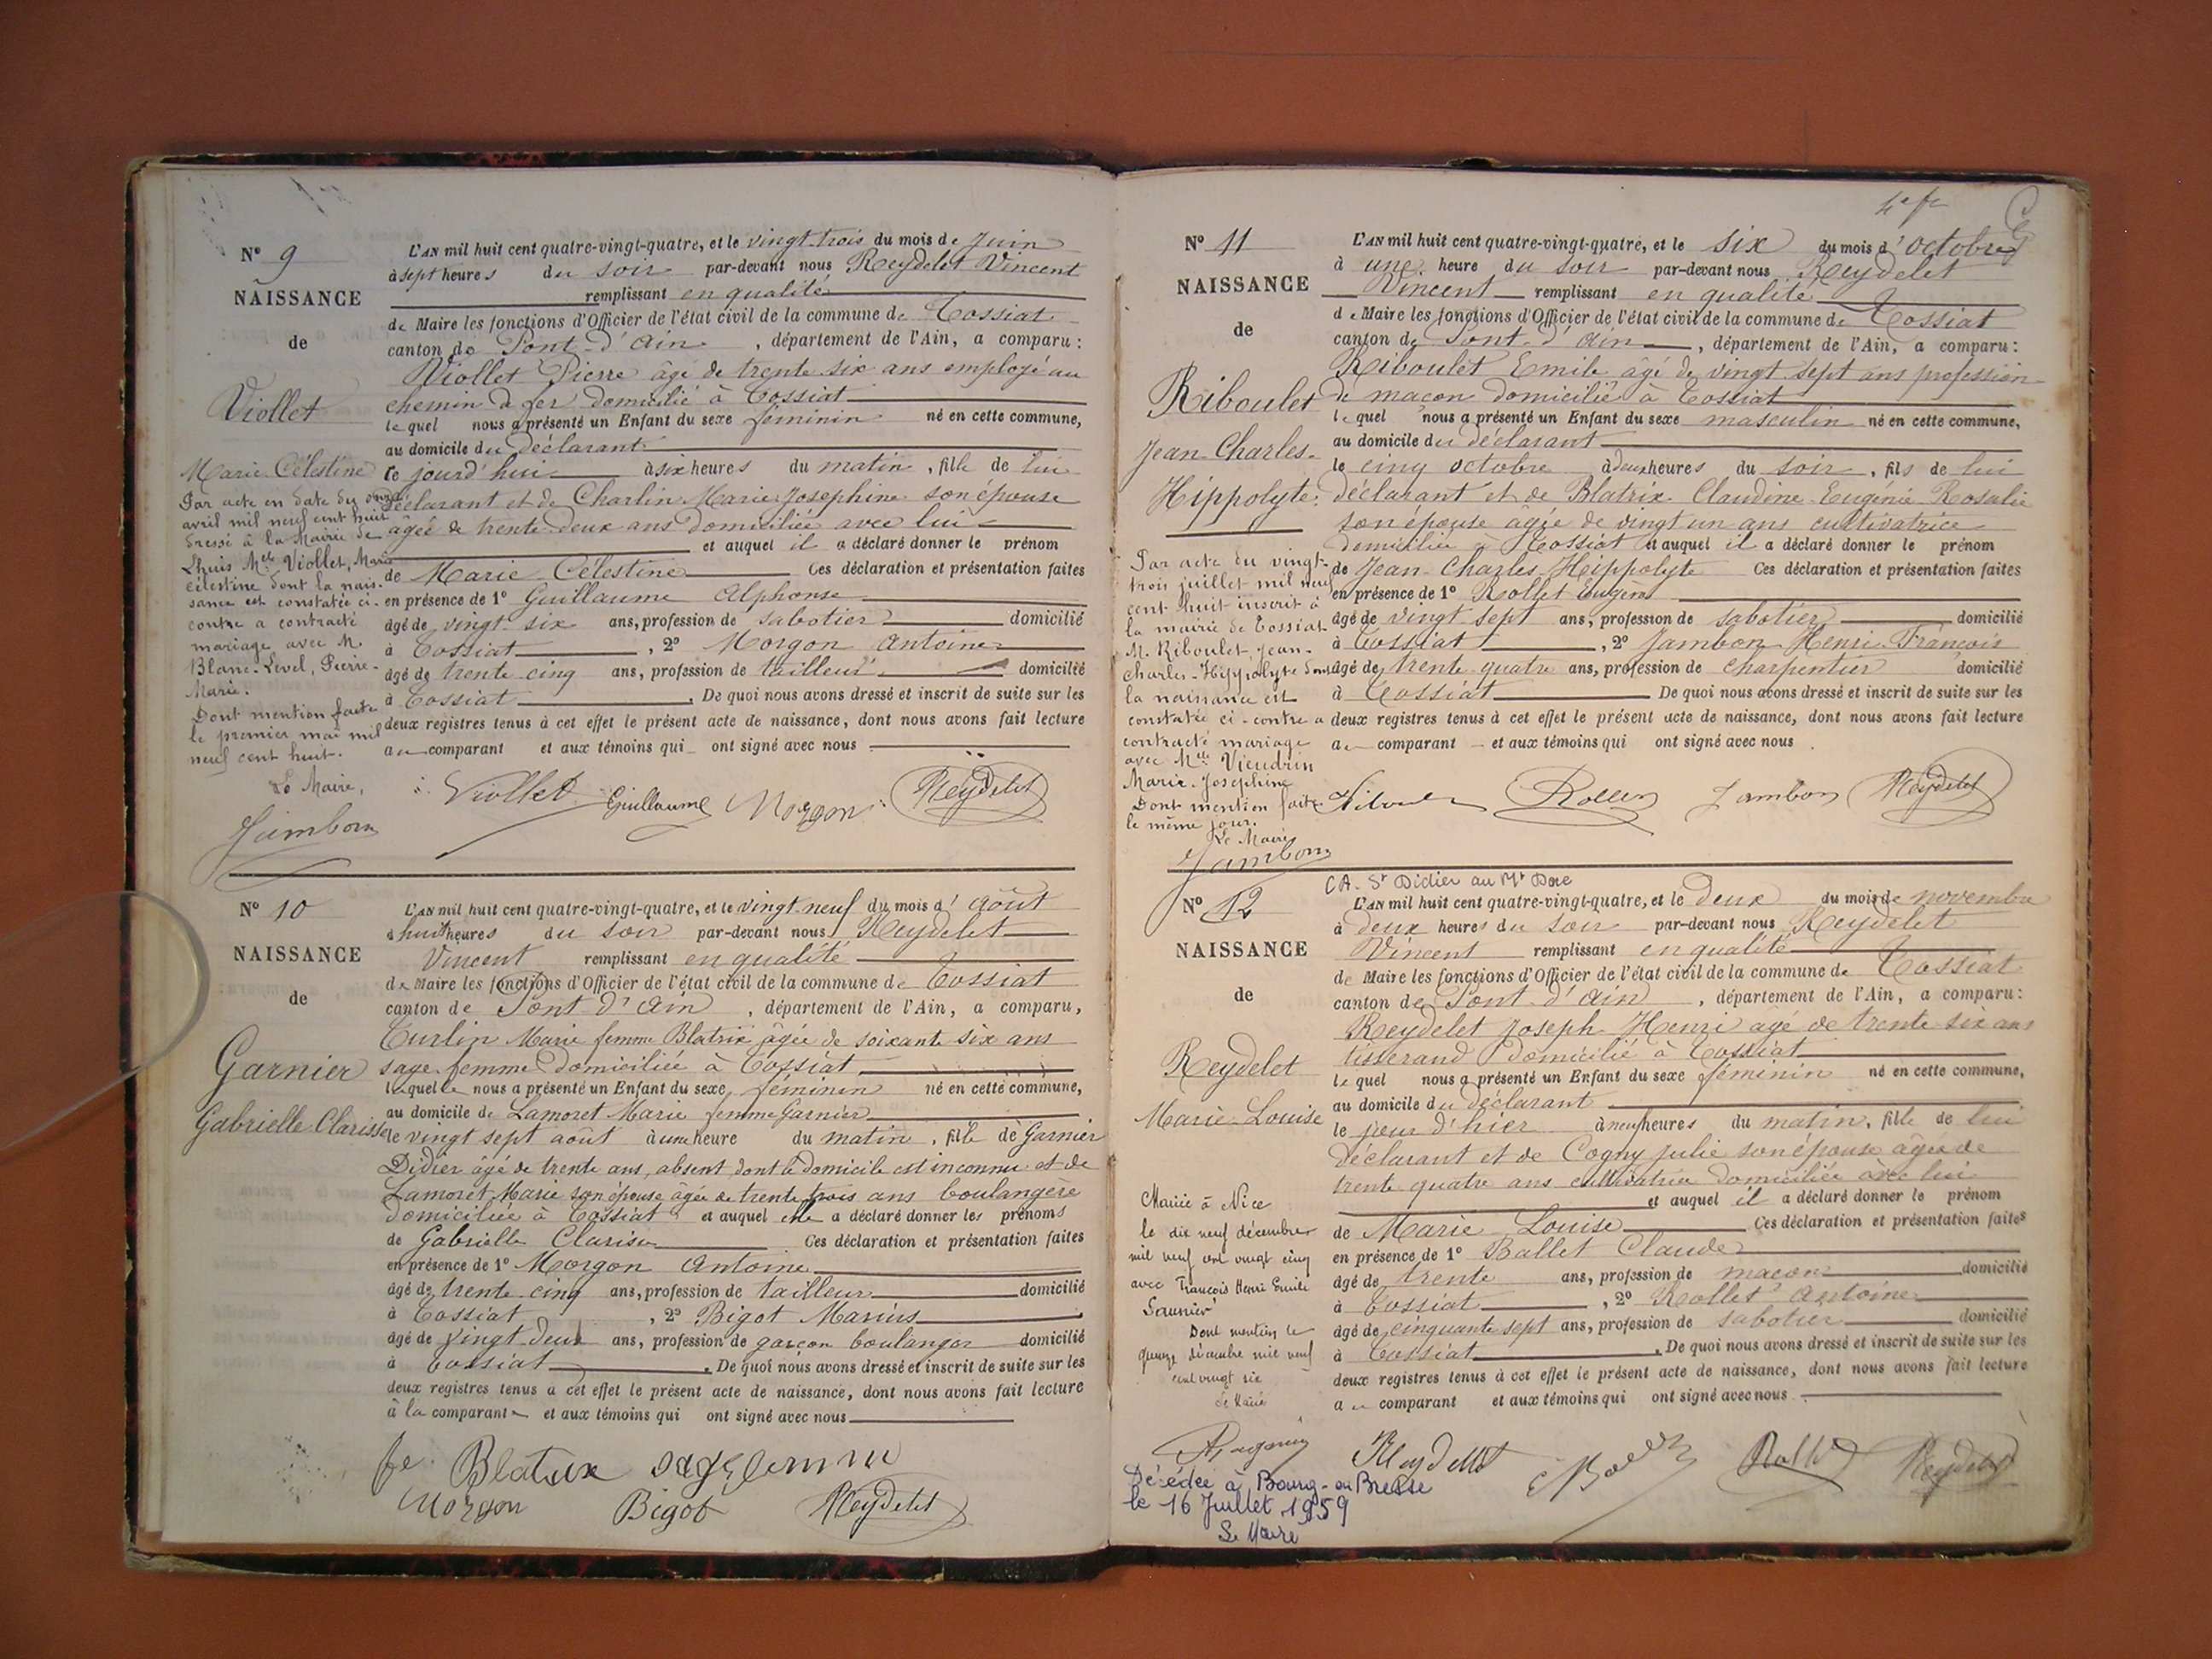 N° 9
NAISSANCE
de
Viollet
Marie Célestine
Par acte en date du onze
avril mil neuf cent huit
dressé à la Mairie de
Lhuis Melle Viollet, Marie
Célestine dont la nais-
sance est constatée ci-
contre a contracté
mariage avec M.
Blanc-Level, Pierre-
Marie.
Dont mention faite
le premier mai mil
neuf cent huit.
Le Maire,
Jambon
L'AN mil huit cent quatre-vingt-quatre, et le vingt trois du mois de Juin
à sept heures du soir par-devant nous Reydelet Vincent
remplissant en qualité
de Maire les fonctions d'Officier de l'état civil de la commune de Tossiat
canton de Pont-d'Ain, département de l'Ain, a comparu :
Viollet Pierre âgé de trente six ans employé au
chemin de fer domicilié à Tossiat
lequel nous a présenté un Enfant du sexe féminin né en cette commune,
au domicile du déclarant
ce jourd'hui à six heures du matin, fille de lui
déclarant et de Charlin Marie Josephine son épouse
âgée de trente deux ans domiciliée avec lui
et auquel il a déclaré donner le prénom
de Marie Célestine Ces déclaration et présentation faites
en présence de 1° Guillaume Alphonse
âgé de vingt-six ans, profession de sabotier domicilié
à Tossiat, 2° Morgon Antoine
âgé de trente cinq ans, profession de tailleur domicilié
à Tossiat. De quoi nous avons dressé et inscrit de suite sur les
deux registres tenus à cet effet le présent acte de naissance, dont nous avons fait lecture
au comparant et aux témoins qui ont signé avec nous
Viollet Guillaume Morgon Reydelet
N° 10
NAISSANCE
de
Garnier
Gabrielle Clarisse
L'AN mil huit cent quatre-vingt-quatre, et le vingt-neuf du mois d'Août
à huit heures du soir par-devant nous Reydelet
Vincent remplissant en qualité
de Maire les fonctions d'Officier de l'état civil de la commune de Tossiat
canton de Pont d'Ain, département de l'Ain, a comparu,
Curlin Marie femme Blatrix âgée de soixante six ans
sage femme domiciliée à Tossiat
laquelle nous a présenté un Enfant du sexe féminin né en cette commune,
au domicile de Lamoret Marie femme Garnier
le vingt sept août à une heure du matin, fille de Garnier
Didier âgé de trente ans, absent dont le domicile est inconnu et de
Lamoret Marie son épouse âgée de trente trois ans boulangère
domiciliée à Tossiat et auquel elle a déclaré donner les prénoms
de Gabrielle Clarisse Ces déclaration et présentation faites
en présence de 1° Morgon Antoine
âgé de trente cinq ans, profession de tailleur domicilié
à Tossiat, 2° Bigot Marius
âgé de vingt deux ans, profession de garçon boulanger domicilié
à Tossiat. De quoi nous avons dressé et inscrit de suite sur les
deux registres tenus à cet effet le présent acte de naissance, dont nous avons fait lecture
à la comparante et aux témoins qui ont signé avec nous
fe Blatrix sage femme
Morgon Bigot Reydelet
N° 11
NAISSANCE
de
Riboulet
Jean-Charles-
Hippolyte
Par acte du vingt-
trois juillet mil neuf
cent huit inscrit à
la mairie de Tossiat
M. Riboulet, Jean-
Charles-Hippolyte dont
la naissance est
constatée ci-contre a
contracté mariage
avec Melle Vieudrin
Marie-Joséphine
Dont mention faite
le même jour.
Le Maire
Jambon
L'AN mil huit cent quatre-vingt-quatre, et le six du mois d'octobre
à une heure du soir par-devant nous Reydelet
Vincent remplissant en qualité
de Maire les fonctions d'Officier de l'état civil de la commune de Tossiat
canton de Pont-d'Ain, département de l'Ain, a comparu :
Riboulet Emile âgé de vingt sept ans profession
de maçon domicilié à Tossiat
lequel nous a présenté un Enfant du sexe masculin né en cette commune,
au domicile du déclarant
le cinq octobre à deux heures du soir, fils de lui
déclarant et de Blatrix Claudine Eugénie Rosalie
son épouse âgée de vingt un ans cultivatrice
domiciliée à Tossiat et auquel il a déclaré donner le prénom
de Jean-Charles Hippolyte Ces déclaration et présentation faites
en présence de 1° Rollet Eugène
âgé de vingt sept ans, profession de sabotier domicilié
à Tossiat, 2° Jambon Henri François
âgé de trente quatre ans, profession de charpentier domicilié
à Tossiat De quoi nous avons dressé et inscrit de suite sur les
deux registres tenus à cet effet le présent acte de naissance, dont nous avons fait lecture
au comparant et aux témoins qui ont signé avec nous
Riboulet Rollet Jambon Reydelet
CA. St Didier au Mt Dore
N° 12
NAISSANCE
de
Reydelet
Marie Louise
Mariée à Nice
le dix neuf décembre
mil neuf cent vingt cinq
avec François Henri Emile
Saunier
Dont mention le
quinze décembre mil neuf
cent vingt six
Le Maire
Décédée à Bourg-en-Bresse
le 16 Juillet 1959
Le Maire
L'AN mil huit cent quatre-vingt-quatre, et le deux du mois de novembre
à deux heures du soir par-devant nous Reydelet
Vincent remplissant en qualité
de Maire les fonctions d'Officier de l'état civil de la commune de Tossiat
canton de Pont-d'Ain, département de l'Ain, a comparu :
Reydelet Joseph Henri âgé de trente six ans
tisserand domicilié à Tossiat
lequel nous a présenté un Enfant du sexe féminin né en cette commune,
au domicile du déclarant
le jour d'hier à neuf heures du matin, fille de lui
déclarant et de Cogny Julie son épouse âgée de
trente quatre ans cultivatrice domiciliée avec lui
et auquel il a déclaré donner le prénom
de Marie Louise Ces déclaration et présentation faites
en présence de 1° Ballet Claude
âgé de trente ans, profession de maçon domicilié
à Tossiat, 2° Rollet Antoine
âgé de cinquante sept ans, profession de sabotier domicilié
à Tossiat. De quoi nous avons dressé et inscrit de suite sur les
deux registres tenus à cet effet le présent acte de naissance, dont nous avons fait lecture
au comparant et aux témoins qui ont signé avec nous
Reydellet Rollet Reydelet